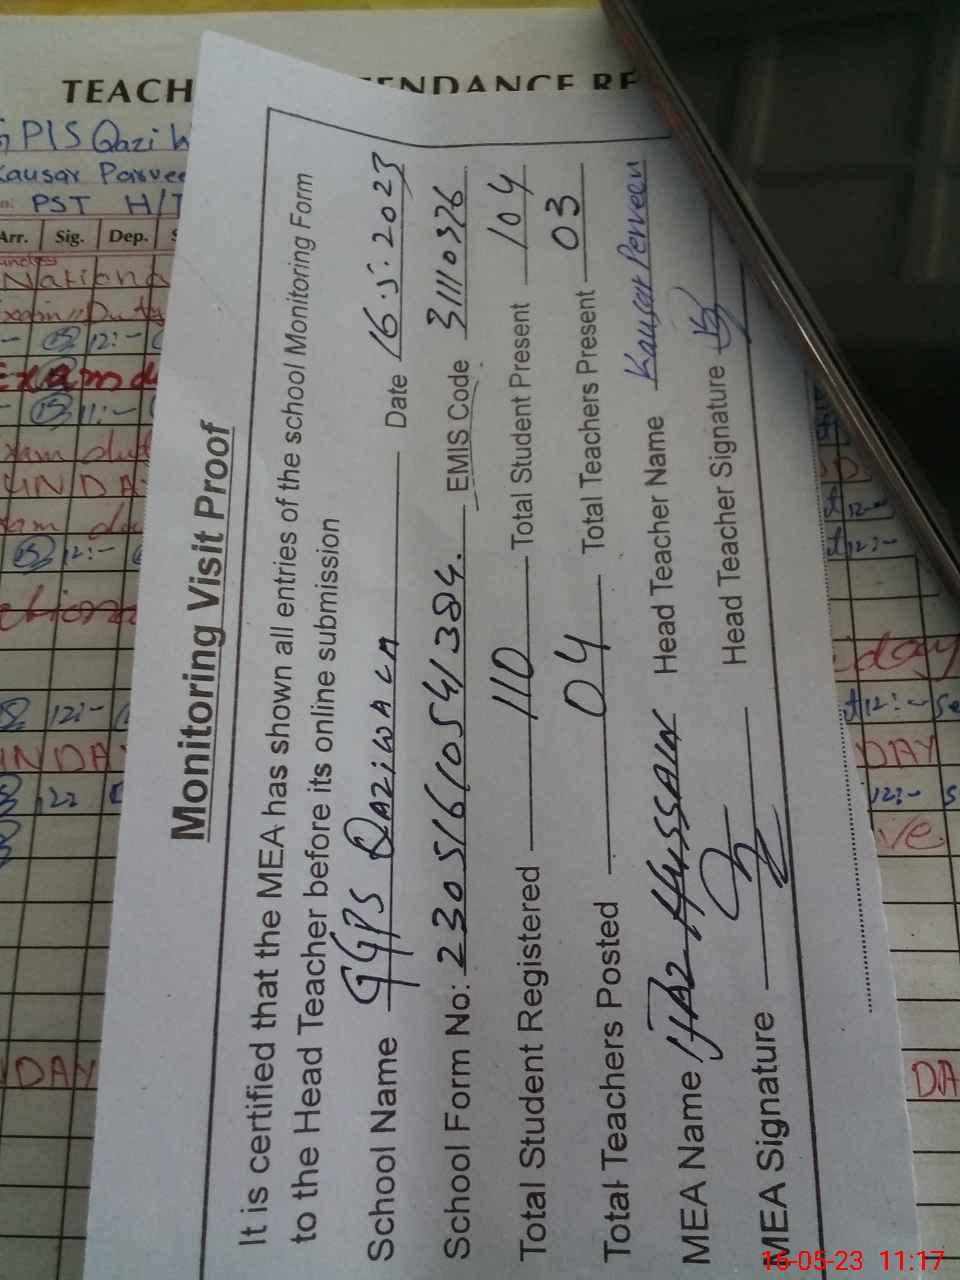 Monitoring Visit Proof
It is certified that the MEA has shown all entries of the school Monitoring Form
to the Head Teacher before its online submission
School Name GGPS QAZIWALA Date 16.5.2023
School Form No: 23051610541384. EMIS Code 31110326
Total Student Registered 110 Total Student Present 104
Total Teachers Posted 04 Total Teachers Present 03
MEA Name HUSSAIN Head Teacher Name Kausar Perveen
MEA Signature Head Teacher Signature
TEACH ENDANCE RE
PIS Qazi W
Kausar Parvee
PST H/T
Arr. Sig. Dep.
Nationa
Exam Dut
12:-
Exam d
11:-
Exam dut
UNDA
am du
12:-
12:-
UNDA
22
NDAY
12:-
12:-
iday
12:- Se
DAY
12:- S
ve
DA
16-05-23 11:17